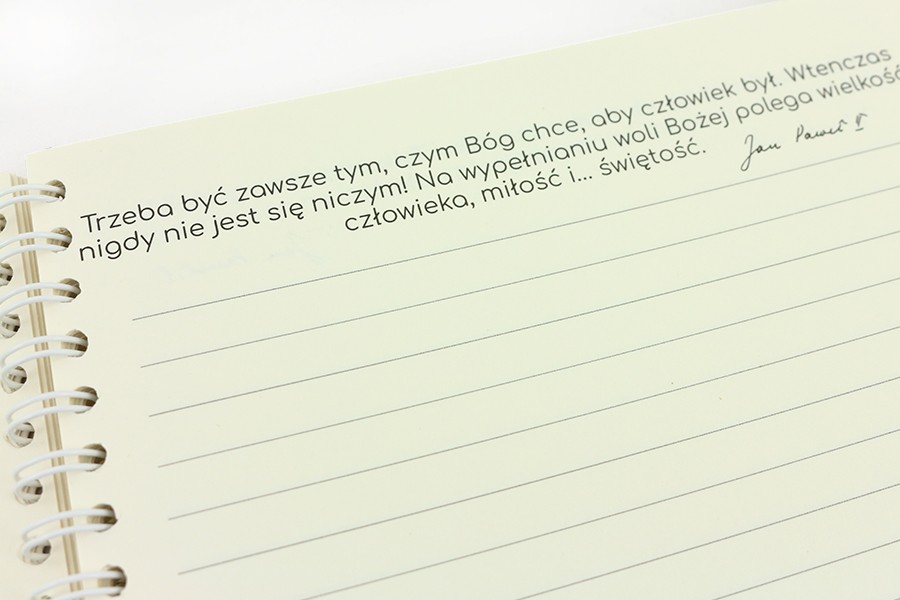 Trzeba być zawsze tym, czym Bóg chce, aby człowiek był. Wtenczas
nigdy nie jest się niczym! Na wypełnianiu woli Bożej polega wielkość
człowieka, miłość i... świętość.
Jan Paweł II